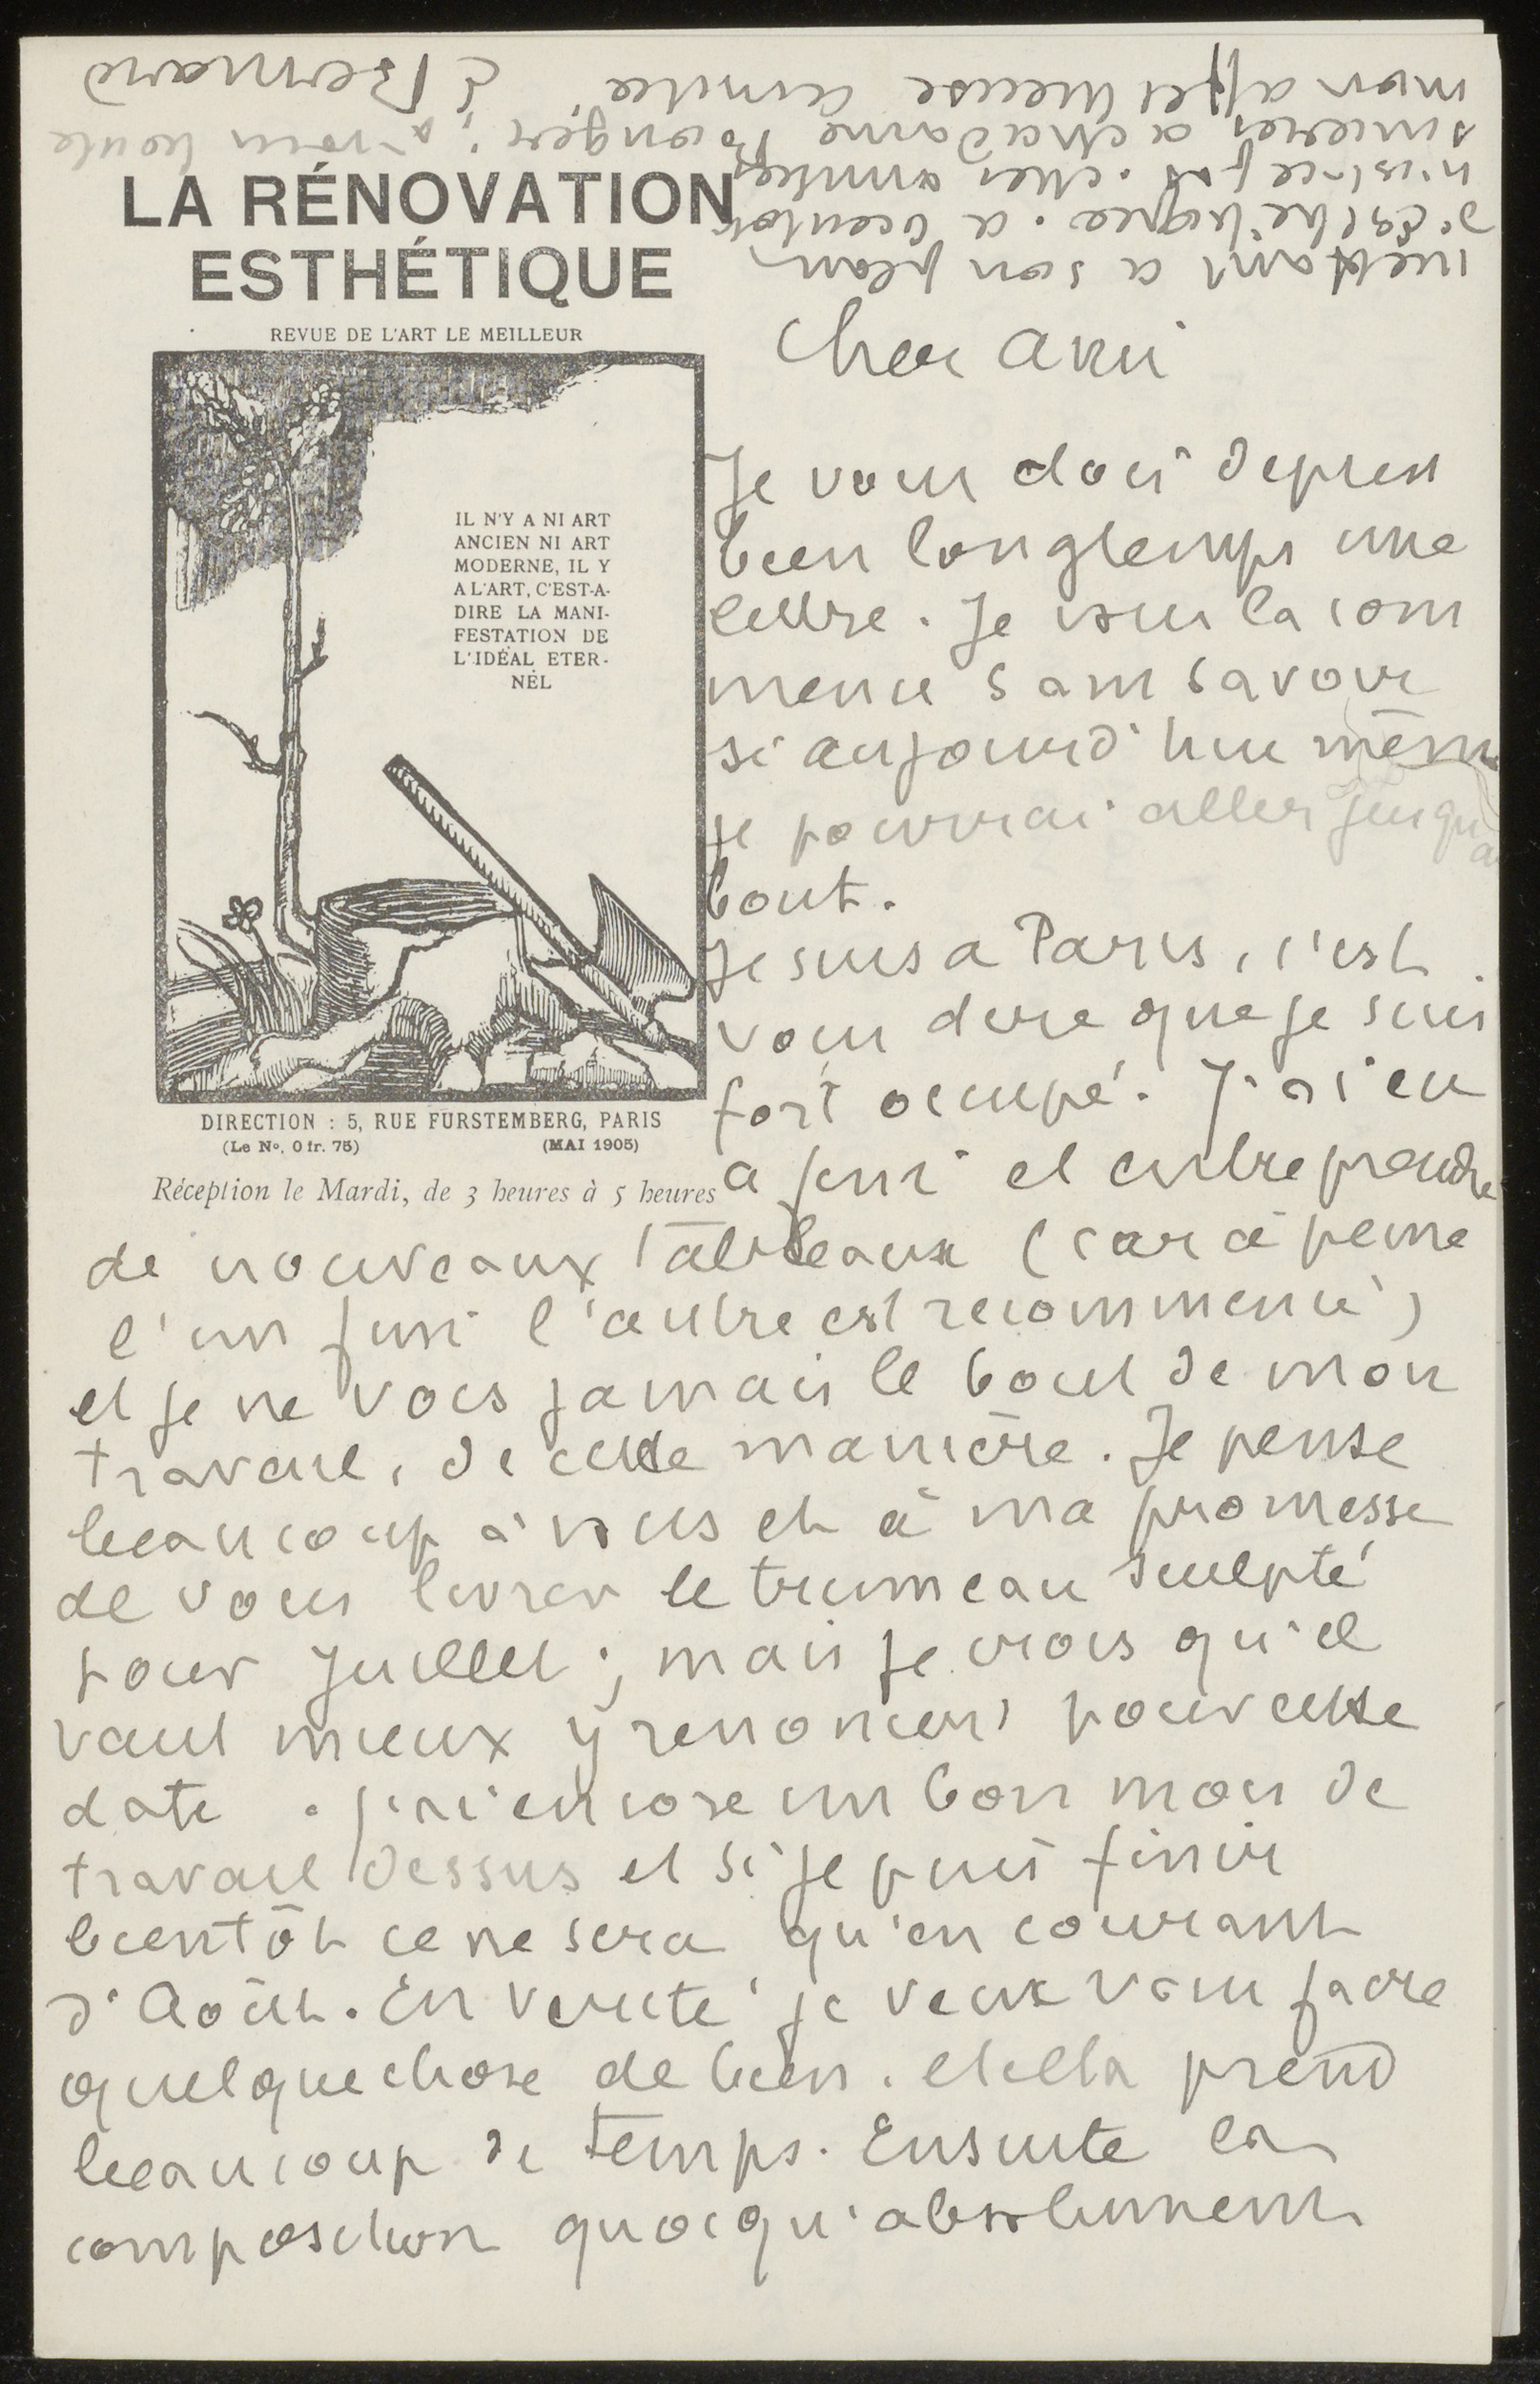 LA RÉNOVATION
ESTHÉTIQUE
REVUE DE L'ART LE MEILLEUR
IL N'Y A NI ART
ANCIEN NI ART
MODERNE, IL Y
A L'ART, C'EST-A-
DIRE LA MANI-
FESTATION DE
L'IDÉAL ETER-
NEL
DIRECTION : 5, RUE FURSTEMBERG, PARIS
(Le No, 0 fr. 75) (MAI 1905)
Réception le Mardi, de 3 heures à 5 heures
Cher ami
Je vous dois depuis
bien longtemps une
lettre. Je vous la com
mence sans savoir
si aujourd'hui même
je pourrai aller jusqu'au
bout.
Je suis a Paris, c'est
vous dire que je suis
fort occupé. J'ai eu
a finir et entreprendre
de nouveaux tableaux (car à peine
l'un fini l'autre est recommencé)
et je ne vois jamais le bout de mon
travail, de cette manière. Je pense
beaucoup à vous et à ma promesse
de vous livrer le trumeau sculpté
pour Juillet ; mais je crois qu'il
vaut mieux y renoncer pour cette
date. j'ai encore un bon mois de
travail dessus et si je puis finir
bientôt ce ne sera qu'en courant
d'Août. En vérité je veux vous faire
quelque chose de bien. et cela prend
beaucoup de temps. Ensuite la
composition quoiqu'absolument
a son plan
d'Esthétique. a bientôt
n'est-ce pas. mes amitiés
sincères a Madame à vous toute
mon affectueuse amitié. E Bernard